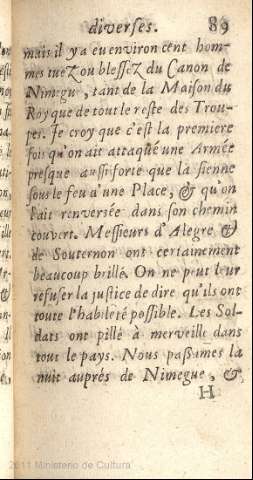 diverses. 89
mais il y a eu environ cent hom-
mes tuez ou blessez du Canon de
Nimegu, tant de la Maison du
Roy que de tout le reste des Trou-
pes. Je croy que c'est la premiere
fois qu'on ait attaqué une Armée
presque aussi forte que la sienne
sous le feu d'une Place, & qu'on
l'ait renversée dans son chemin
couvert. Messieurs d'Alegre &
de Souternon ont certainement
beaucoup brillé. On ne peut leur
refuser la justice de dire qu'ils ont
toute l'habileté possible. Les Sol-
dats ont pillé à merveille dans
tout le pays. Nous passames la
nuit auprés de Nimegue, &
H
2011 Ministerio de Cultura